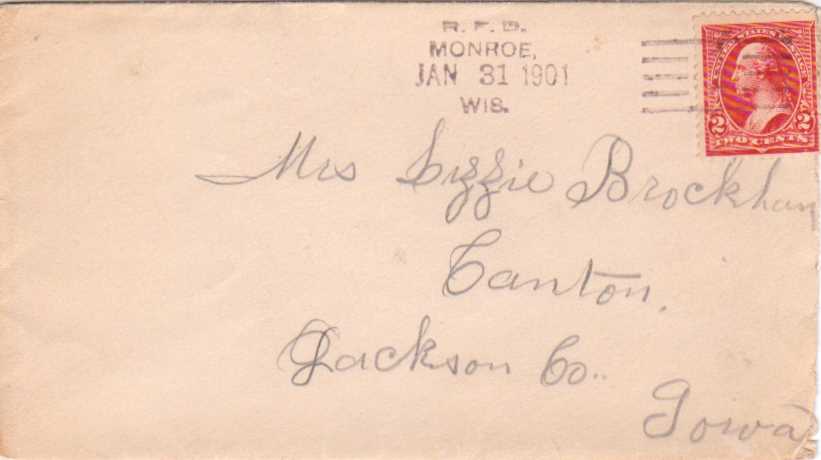 R. F. D.
MONROE,
JAN 31 1901
WIS.
UNITED STATES POSTAGE
2 2
TWO CENTS
Mrs Lizzie Brockham
Canton,
Jackson Co..
Iowa